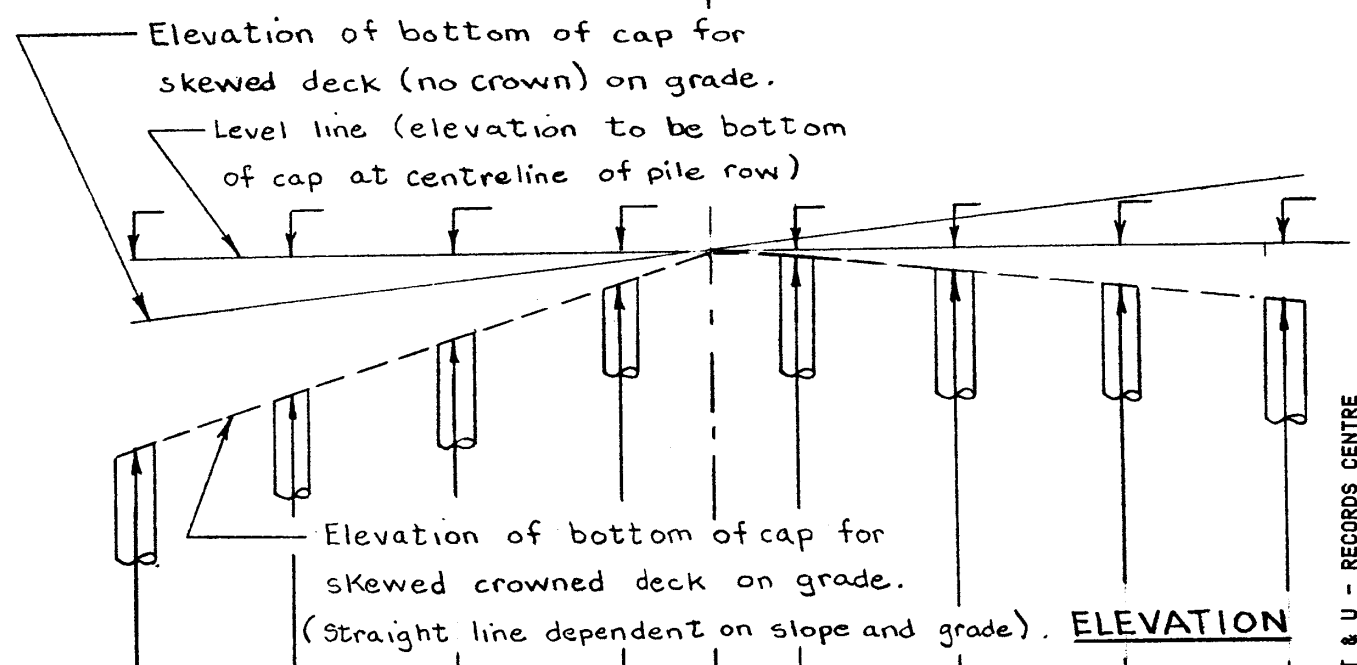 Elevation of bottom of cap for
skewed deck (no crown) on grade.
Level line (elevation to be bottom
of cap at centreline of pile row)
Elevation of bottom of cap for
skewed crowned deck on grade.
(Straight line dependent on slope and grade).
ELEVATION
& U - RECORDS CENTRE